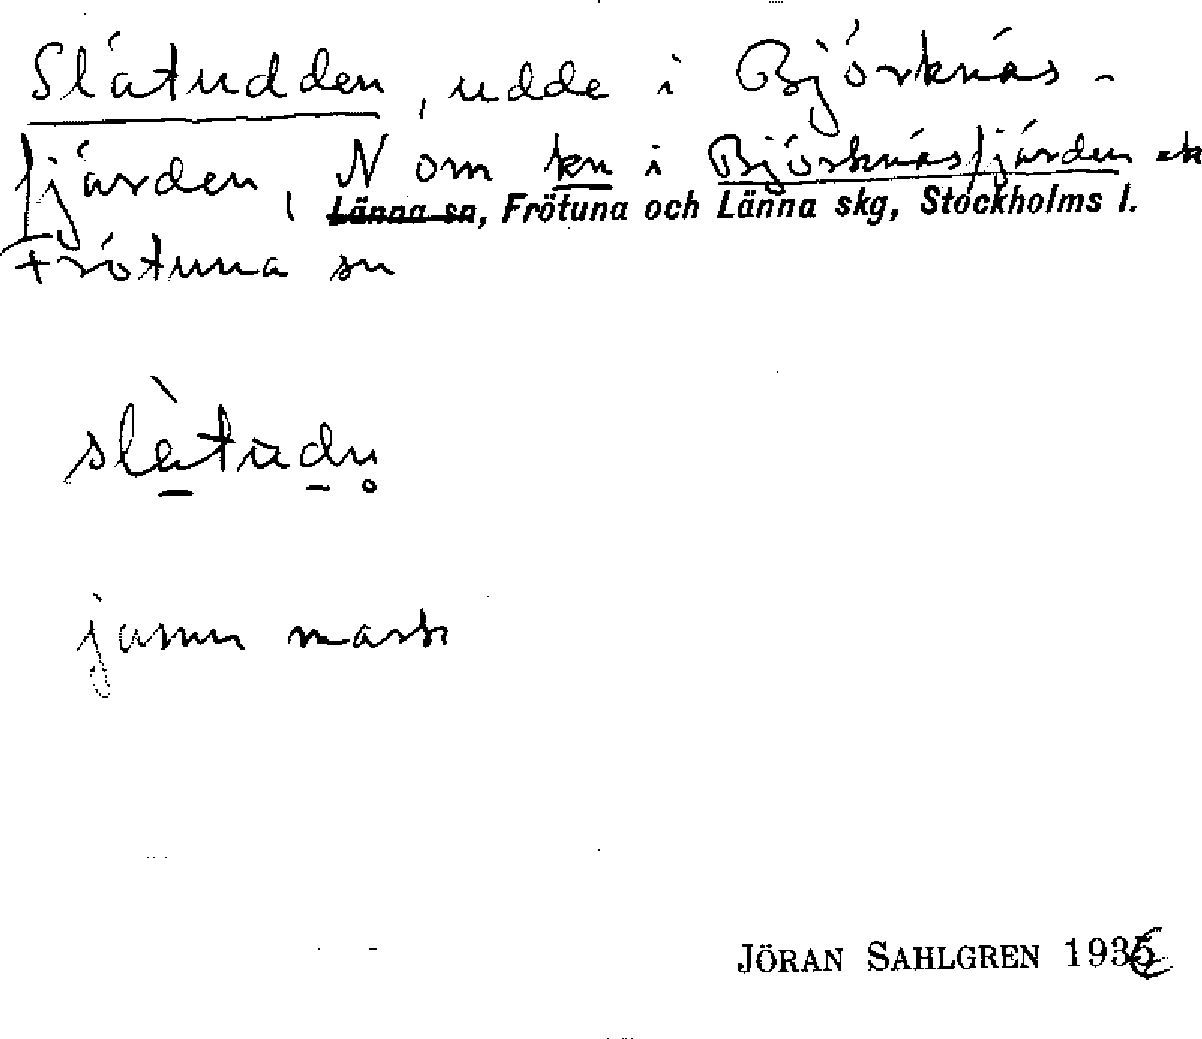 Slätudden, udde i Björknäs-
fjärden, N om kn i Björknäsfjärden ek
Länna sn, Frötuna och Länna skg, Stockholms l.
Frötuna sn
slàtudn̥
jämn mark
JÖRAN SAHLGREN 1936